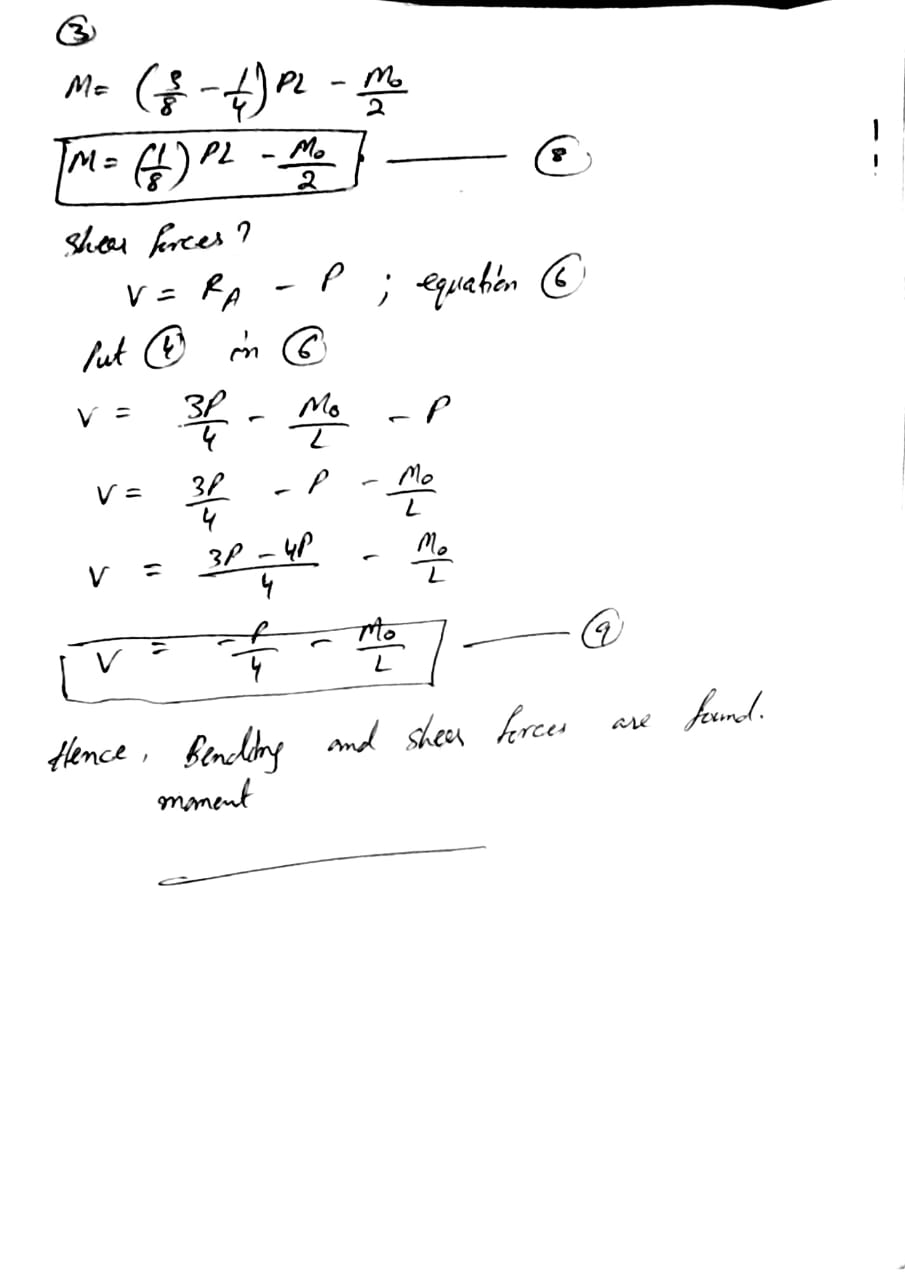 ③
M = (3/8 - 1/4) PL - Mo/2
M = (1/8) PL - Mo/2 —— ⑧
Shear forces?
V = RA - P ; equation ⑥
Put ④ in ⑥
V = 3P/4 - Mo/L - P
V = 3P/4 - P - Mo/L
V = 3P - 4P/4 - Mo/L
V = -P/4 - Mo/L —— ⑨
Hence, Bending and shear forces are found.
moment